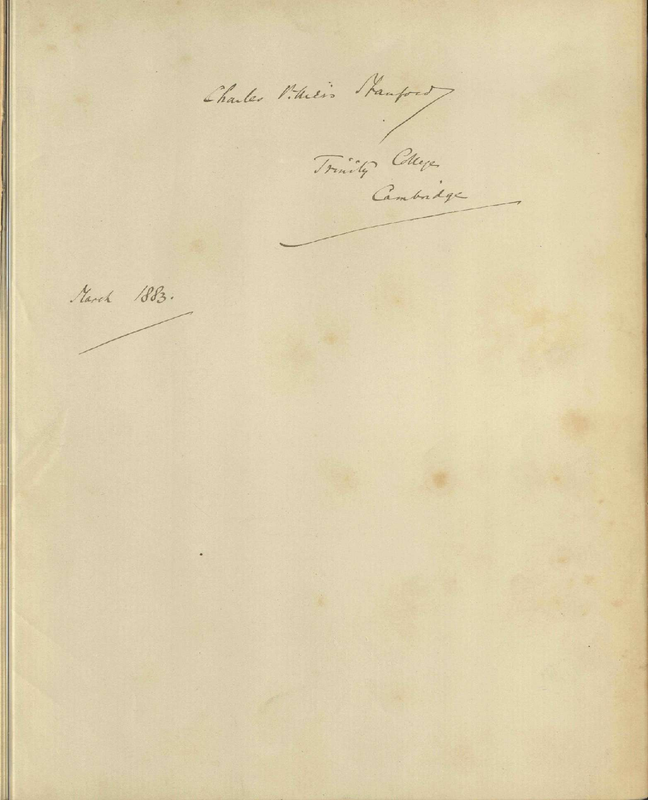 Charles Villiers Stanford
Trinity College
Cambridge
March 1883.